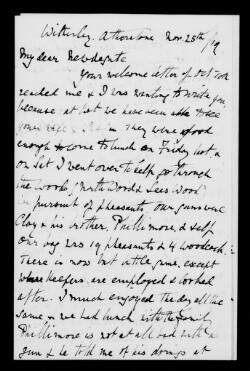 Witherley. Atherstone Nov. 25th /19
My dear Newdegate
Your welcome letter of Oct
reached me & I was wanting to write you,
because at last we have been able to see
your They were good
enough to come to lunch on Friday last, &
on Sat I went over to help go through
the Woods, North Wood & Sees Wood
in pursuit of pheasants. Our guns were
Clay & his brother, Phillimore, & self
Our bag was 19 pheasants & 4 woodcock.
There is now but little game, except
where Keepers are employed & looked
after. I much enjoyed the day all the
same & we had lunch with the family
Phillimore is not at all bad with a
gun & he told me of his doings at